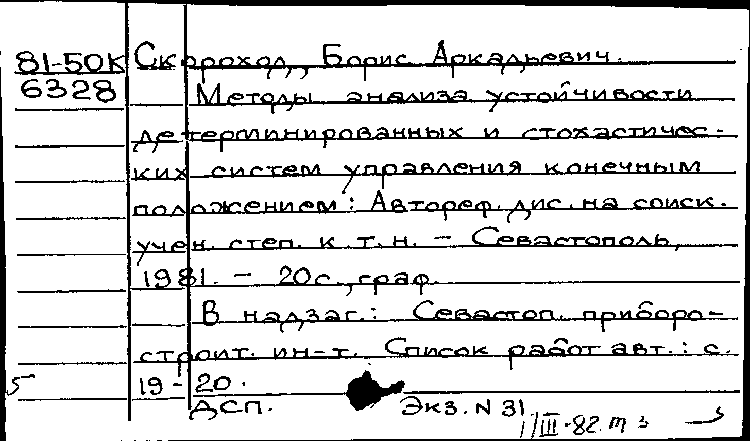 81-50К Скороход, Борис Аркадьевич.
6328 Методы анализа устойчивости
детерминированных и стохастичес-
ких систем управления конечным
положением: Автореф. дис. на соиск.
учен. степ. к. т. н. - Севастополь,
1981. - 20 с., граф.
В надзаг.: Севастоп. приборо-
строит. ин-т. Список работ авт.: с.
19-20.
ДСП. Экз. N 31
5 1/III-82. т 3